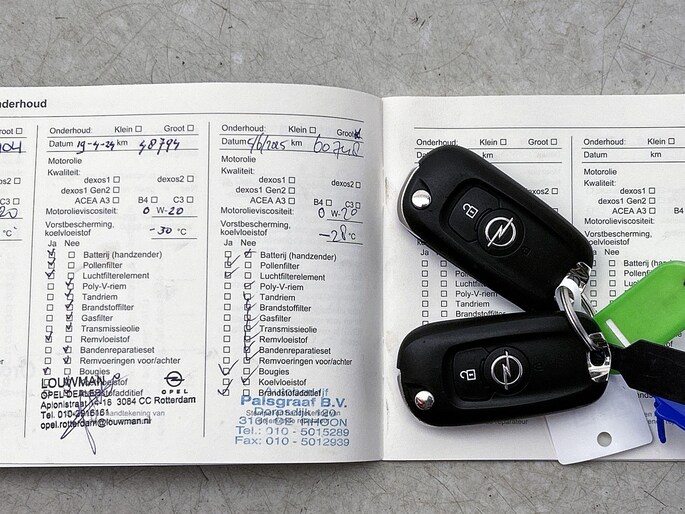 nderhoud
root
Onderhoud: Klein Groot
Datum 19-4-24 km 48794
Motorolie
Kwaliteit:
dexos1 dexos2
dexos1 Gen2
ACEA A3 B4 C3
Motorolieviscositeit: 0 W-20
Vorstbescherming,
koelvloeistof -30 °C
Ja Nee
Batterij (handzender)
Pollenfilter
Luchtfilterelement
Poly-V-riem
Tandriem
Brandstoffilter
Gasfilter
Transmissieolie
Remvloeistof
Bandenreparatieset
Remvoeringen voor/achter
Bougies
Koelvloeistof
Brandstofadditief
LOUWMAN
OPEL DEALER
OPEL
3084 CC Rotterdam
Tel. 010-2916161
opel.rotterdam@louwman.nl
Onderhoud: Klein Groot
Datum km
Motorolie
Kwaliteit:
dexos1 dexos2
dexos1 Gen2
ACEA A3 B4 C3
Motorolieviscositeit: 0 W-20
Vorstbescherming,
koelvloeistof -28 °C
Ja Nee
Batterij (handzender)
Pollenfilter
Luchtfilterelement
Poly-V-riem
Tandriem
Brandstoffilter
Gasfilter
Transmissieolie
Remvloeistof
Bandenreparatieset
Remvoeringen voor/achter
Bougies
Koelvloeistof
Brandstofadditief
Autobedrijf
Palsgraaf B.V.
Dorpsdijk
RHOON
Tel.: 010 - 5015289
Fax: 010 - 5012939
Onderhoud: Klein Groot
Datum km
Ja Nee
Batterij (handzender)
Pollenfilter
Luchtfilterelement
Poly-V-riem
Tandriem
Brandstoffilter
Onderhoud: Klein
Datum km
Motorolie
Kwaliteit:
dexos1
dexos1 Gen2
ACEA A3
Motorolieviscositeit:
Vorstbescherming,
koelvloeistof
Ja Nee